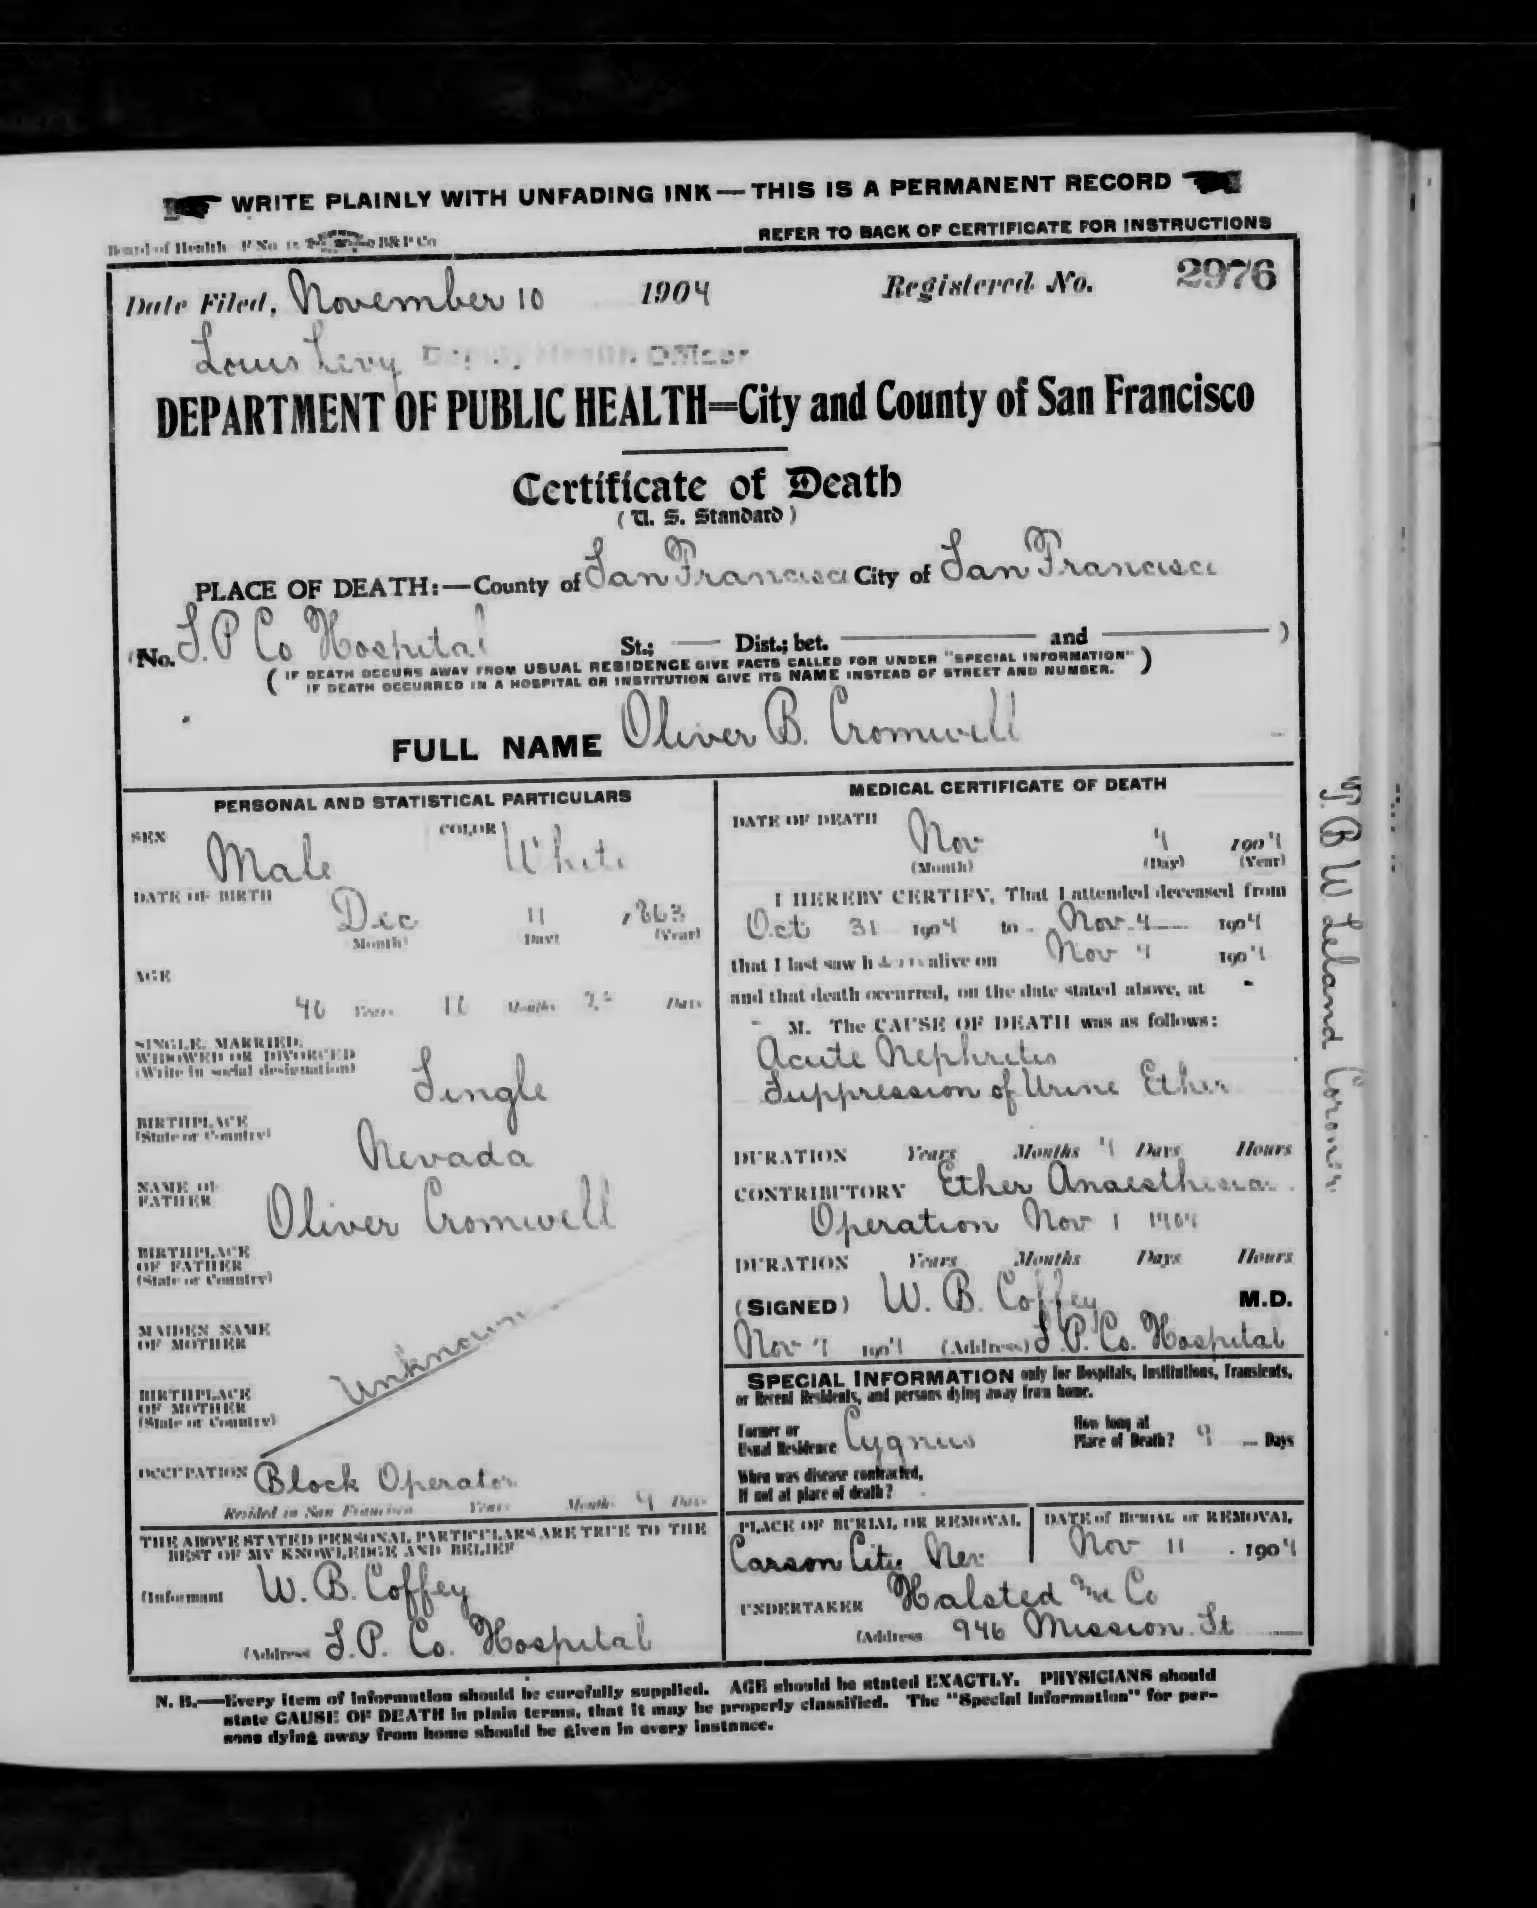 WRITE PLAINLY WITH UNFADING INK — THIS IS A PERMANENT RECORD
Board of Health F No B&P Co
REFER TO BACK OF CERTIFICATE FOR INSTRUCTIONS
Date Filed, November 10 1904 Registered No. 2976
Louis Levy Deputy Health Officer
DEPARTMENT OF PUBLIC HEALTH=City and County of San Francisco
Certificate of Death
(U. S. Standard)
PLACE OF DEATH:—County of San Francisco City of San Francisco
(No. S.P Co Hospital St.; — Dist.; bet. — and — )
( IF DEATH OCCURS AWAY FROM USUAL RESIDENCE GIVE FACTS CALLED FOR UNDER "SPECIAL INFORMATION" )
IF DEATH OCCURRED IN A HOSPITAL OR INSTITUTION GIVE ITS NAME INSTEAD OF STREET AND NUMBER.
FULL NAME Oliver B. Cromwell
PERSONAL AND STATISTICAL PARTICULARS
SEX Male COLOR White
DATE OF BIRTH Dec 11 1863
(Month) (Day) (Year)
AGE
40 Years 10 Months Days
SINGLE, MARRIED,
WIDOWED OR DIVORCED
(Write in social designation) Single
BIRTHPLACE
(State or Country) Nevada
NAME OF
FATHER Oliver Cromwell
BIRTHPLACE
OF FATHER
(State or Country)
MAIDEN NAME
OF MOTHER
Unknown
BIRTHPLACE
OF MOTHER
(State or Country)
OCCUPATION Block Operator
Resided in San Francisco Years Months 9 Days
THE ABOVE STATED PERSONAL PARTICULARS ARE TRUE TO THE
BEST OF MY KNOWLEDGE AND BELIEF
(Informant W. B. Coffey
(Address S.P. Co. Hospital
MEDICAL CERTIFICATE OF DEATH
DATE OF DEATH Nov 9 1904
(Month) (Day) (Year)
I HEREBY CERTIFY, That I attended deceased from
Oct 31 1904 to Nov. 9 1904
that I last saw h alive on Nov 9 1904
and that death occurred, on the date stated above, at -
- M. The CAUSE OF DEATH was as follows:
Acute Nephritis
Suppression of Urine Ether
DURATION Years Months 9 Days Hours
CONTRIBUTORY Ether Anaesthesia
Operation Nov 1 1904
DURATION Years Months Days Hours
(SIGNED) W. B. Coffey M.D.
Nov 9 1904 (Address) S.P. Co. Hospital
SPECIAL INFORMATION only for Hospitals, Institutions, Transients,
or Recent Residents, and persons dying away from home.
Former or
Usual Residence Cygnus
How long at
Place of Death? 9 Days
When was disease contracted,
If not at place of death?
PLACE OF BURIAL OR REMOVAL DATE of BURIAL or REMOVAL
Carson City Nev Nov 11 . 1904
UNDERTAKER Halsted & Co
(Address 946 Mission St
N. B.—Every item of information should be carefully supplied. AGE should be stated EXACTLY. PHYSICIANS should
state CAUSE OF DEATH in plain terms, that it may be properly classified. The "Special Information" for per-
sons dying away from home should be given in every instance.
T. B W Leland Coroner